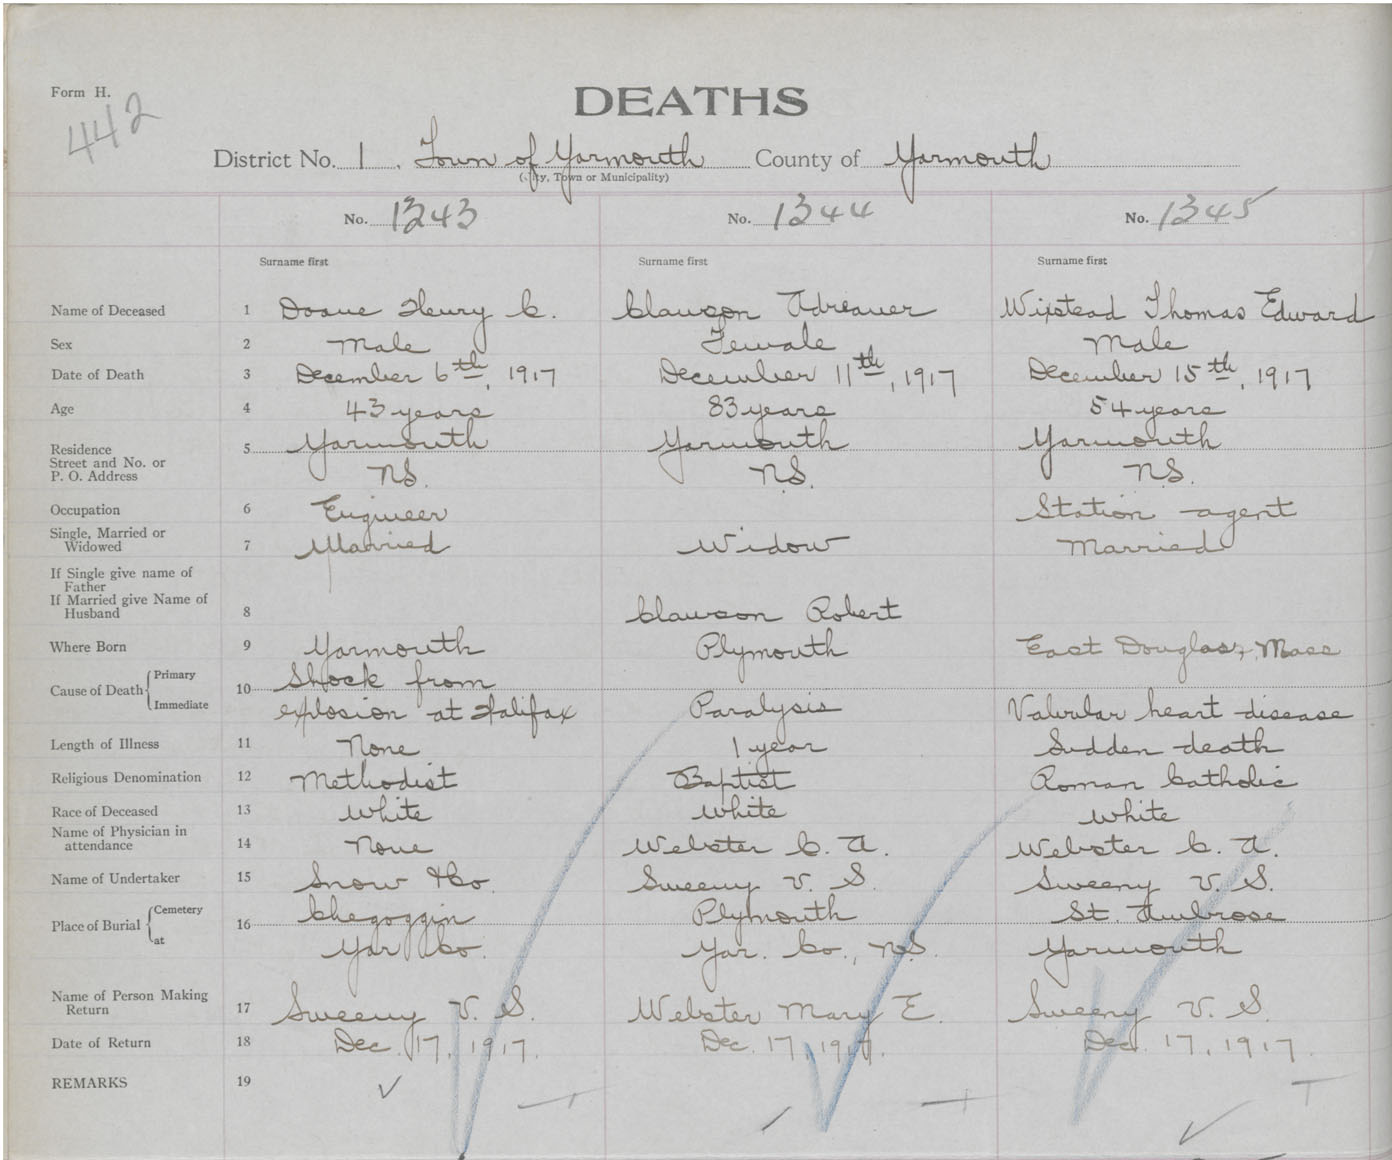 Form H.
442
DEATHS
District No. 1. Town of Yarmouth County of Yarmouth
(City, Town or Municipality)
No. 1343 No. 1344 No. 1345
Surname first Surname first Surname first
Name of Deceased 1 Doane Henry C. Clawson Adreaner Wixstead Thomas Edward
Sex 2 Male Female Male
Date of Death 3 December 6th, 1917 December 11th, 1917 December 15th, 1917
Age 4 43 years 83 years 54 years
Residence 5 Yarmouth Yarmouth Yarmouth
Street and No. or
P. O. Address N.S. N.S. N.S.
Occupation 6 Engineer Station agent
Single, Married or
Widowed 7 Married Widow Married
If Single give name of
Father
If Married give Name of
Husband 8 Clawson Robert
Where Born 9 Yarmouth Plymouth East Douglas, Mass
Cause of Death Primary 10 Shock from
Immediate explosion at Halifax Paralysis Valvular heart disease
Length of Illness 11 None 1 year Sudden death
Religious Denomination 12 Methodist Baptist Roman Catholic
Race of Deceased 13 White White White
Name of Physician in
attendance 14 None Webster C. A. Webster C. A.
Name of Undertaker 15 Snow & Co. Sweeny V. S. Sweeny V. S.
Place of Burial Cemetery 16 Chegoggin Plymouth St. Ambrose
at Yar Co. Yar. Co., N.S. Yarmouth
Name of Person Making
Return 17 Sweeny V. S. Webster Mary E. Sweeny V. S.
Date of Return 18 Dec. 17, 1917. Dec. 17, 1917. Dec. 17, 1917.
REMARKS 19